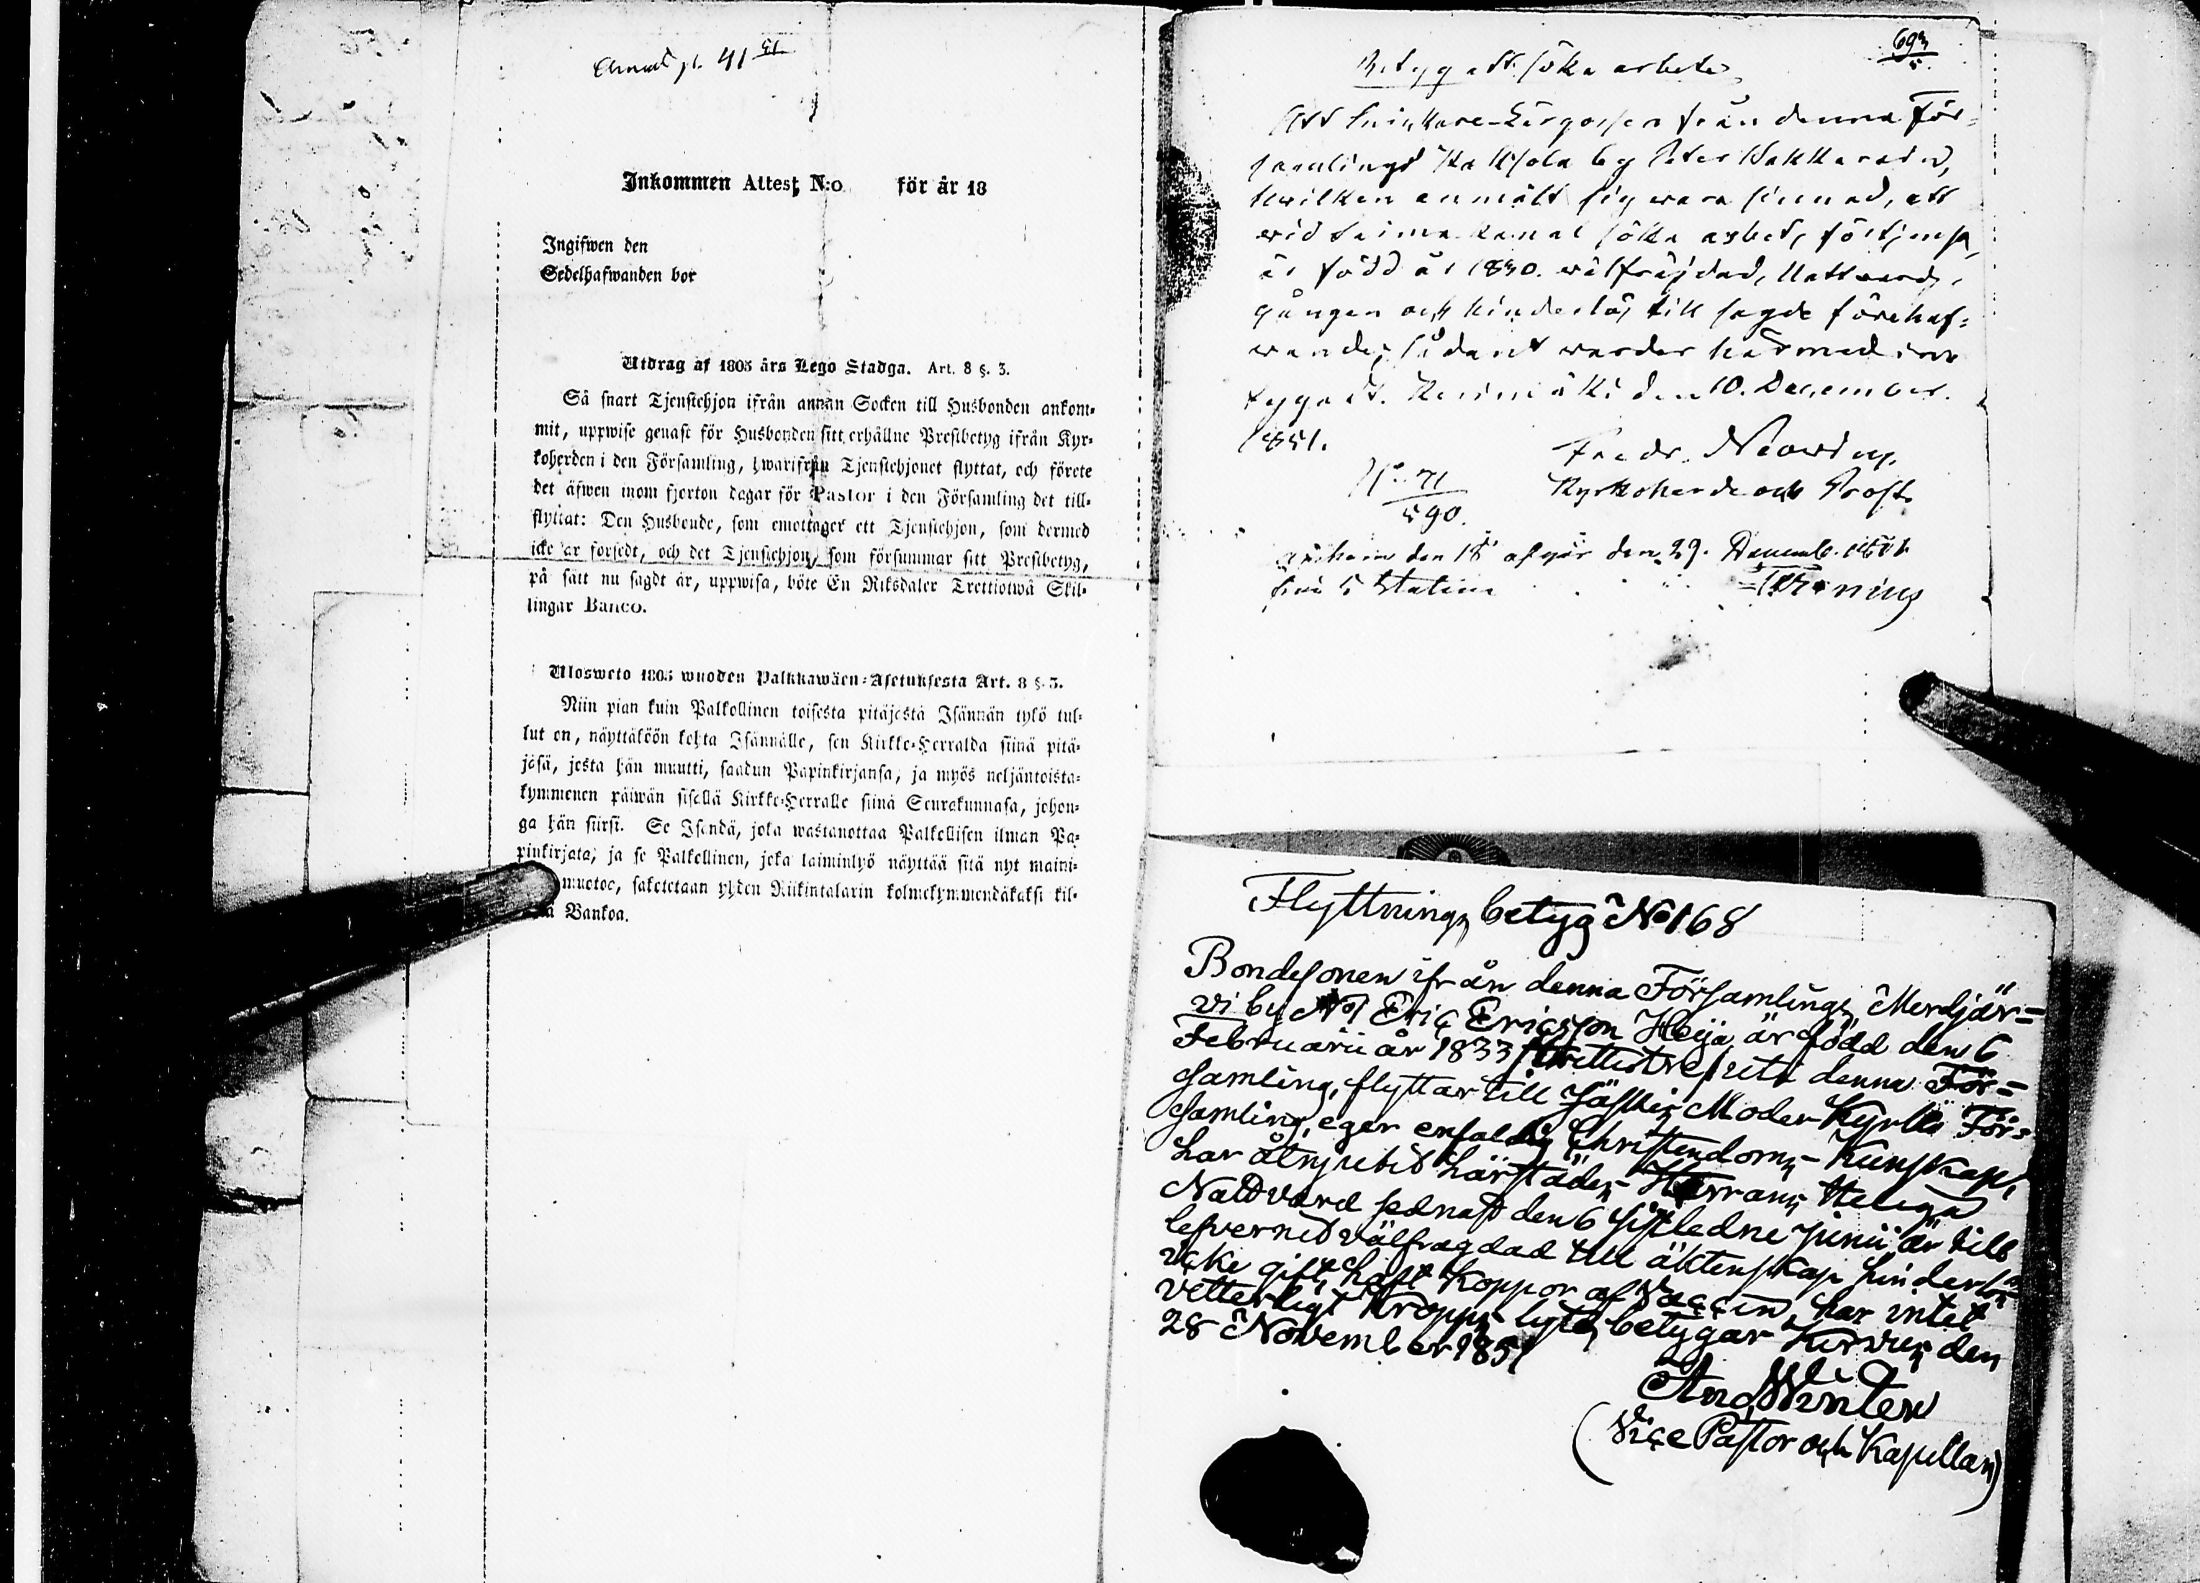 41
Inkommen Attest N:o för år 18
Ingifwen den
Sedelhafwanden bor
Utdrag af 1805 års Lego Stadga. Art. 8 §. 3.
Så snart Tjenstehjon ifrån annan Socken till Husbonden ankom-
mit, uppwise genast för Husbonden sitt erhållne Prestbetyg ifrån Kyr-
koherden i den Församling, hwarifrån Tjenstehjonet flyttat, och förete
det äfwen inom fjorton dagar för Pastor i den Församling det till-
flyttat: Den Husbonde, som emottager ett Tjenstehjon, som dermed
icke är försedt, och det Tjenstehjon, som försummar sitt Prestbetyg,
på sätt nu sagdt är, uppwisa, böte En Riksdaler Trettiotwå Skil-
lingar Banco.
Ulosweto 1805 wuoden Palkkawäen-Asetuksesta Art. 8 §. 3.
Niin pian kuin Palkollinen toisesta pitäjestä Isännän tykö tul-
lut on, näyttäköön kohta Isännälle, sen Kirkko-Herralda siinä pitä-
jäsä, josta hän muutti, saadun Papinkirjansa, ja myös neljäntoista-
kymmenen päiwän sisellä Kirkko-Herralle siinä Seurakunnasa, johon-
ga hän siirsi. Se Isändä, joka wastanottaa Palkollisen ilman Pa-
pinkirjata, ja se Palkollinen, joka laiminlyö näyttää sitä nyt maini-
muotoo, sakotetaan yhden Riikintalarin kolmekymmendäkaksi kil-
Bankoa.
693
Betyg att söka arbete
Att från denna För=
samlings by Peter
hwilken anmält sig wara sinnad, att
wid Saima Kanal söka arbets förtjenst,
är född år 1830. wälfräjdad, Nattwards=
gången och hinderlös till sagde förehaf=
wande; sådant warder härmed
tygadt. Kerimäki den 10. December
1851.
Fredr. Neovius.
Kyrkoherde och Prost.
N:o 71
590.
den 18 afgår den 29. Decemb. 1851
5 Station
Flyttnings betyg No 168
Bondesonen ifrån denna Församlings Merdjär=
vi by No 1 Eric Ericsson Heijä är född den 6
Februarii år 1833 uti denna För=
samling, flyttar till Jäskis Moder Kyrko För=
samling, eger enfaldig Christendoms-Kunskap,
har åtnjutit härstädes Herrans Heliga
Nattvard sednast den 6 sistledne Junii, är till
lefvernet välfrägdad till äktenskap hinderlös
icke gift, haft koppor af Vaccin, har intet
vetterligt kropps lyte, betygar Kirvus den
28 November 1851
And Winter
(Vice Pastor och Kapellan)